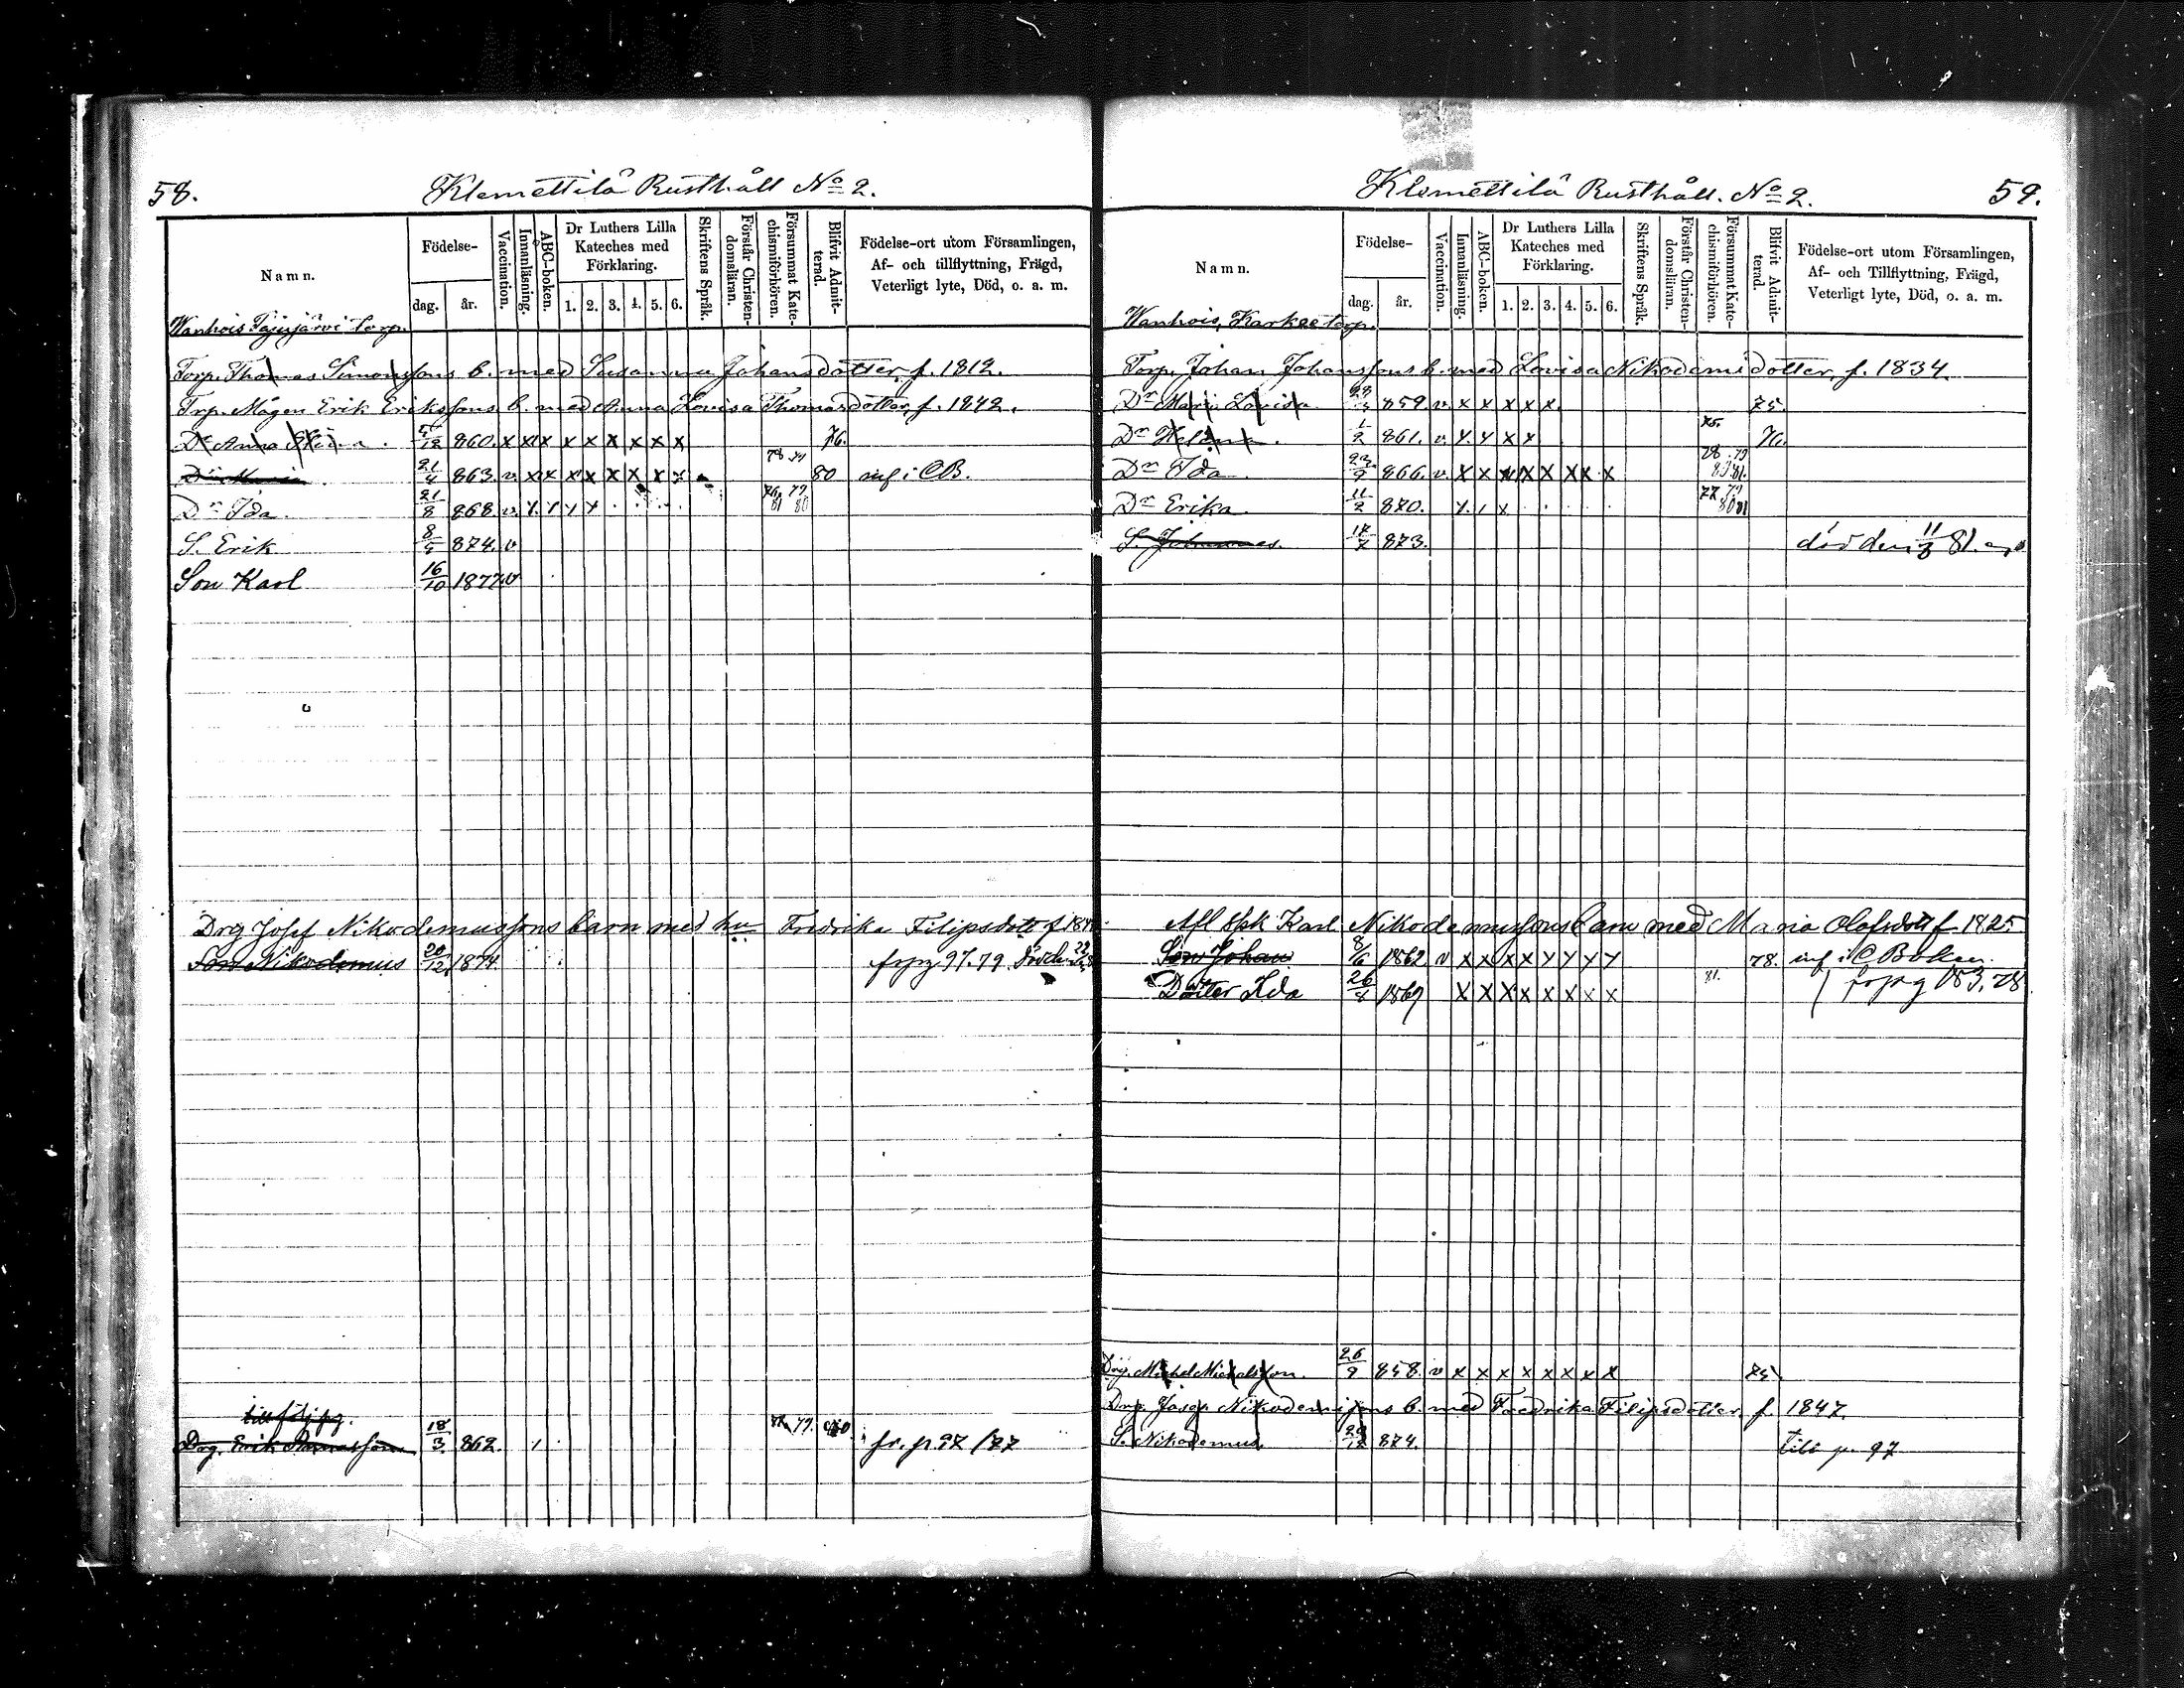 58.
Klemettilä Rusthåll No 2.
Namn.
Födelse-
dag.
år.
Vaccination.
Innanläsning.
ABC-boken.
Dr Luthers Lilla Kateches med Förklaring.
1. 2. 3. 4. 5. 6.
Skriftens Språk.
Förstår Christen-domsläran.
Försummat Kate-chismiförhören.
Blifvit Admit-terad.
Födelse-ort utom Församlingen,
Af- och tillflyttning, Frägd,
Veterligt lyte, Död, o. a. m.
Wanhois Pajujärvi torp.
Torp. Thomas Simonssons b. med Susanna Johansdotter, f. 1812.
Trp. Mågen Erik Erikssons b. med Anna Lovisa Thomasdotter, f. 1842.
Dr Anna 5/12 860. x x x x x x x x x 76.
Dr Maria 21/4 863. v. x x x x x x x x 78 79 80 inf i CB.
Dr Ida. 21/8 868. v. x x x x 76. 79 81 80
S. Erik 8/5 874. v
Son Karl 16/10 1877 v
Drg Josef Nikodemussons barn med hu Fredrika Filipsdott f 184
Son Nikodemus 20/12 1874. fr pg 97. 79
till följ pg.
Drg. Erik 18/3 862. 79. fr. p. 97 /77
Klemettilä Rusthåll. No 2.
59.
Namn.
Födelse-
dag.
år.
Vaccination.
Innanläsning.
ABC-boken.
Dr Luthers Lilla Kateches med Förklaring.
1. 2. 3. 4. 5. 6.
Skriftens Språk.
Förstår Christen-domsläran.
Försummat Kate-chismiförhören.
Blifvit Admit-terad.
Födelse-ort utom Församlingen,
Af- och Tillflyttning, Frägd,
Veterligt lyte, Död, o. a. m.
Wanhois, Karkee torp.
Torp. Johan Johanssons b. med Lovisa Nikodemidotter, f. 1834.
Dr Maria Lovisa 859. v. x x x x x. 75.
Dr Helena. 1/2 861. v. x x x x 75. 76.
Dr Ida 23/9 866. v. x x x x x x x x 78. 79 80 81.
Dr Erika 11/2 870. x x x 77. 79 80 81
S. Johannes. 873. död den 81.
Afl Spk Karl Nikodemussons barn med Maria Olofsdott f 1825
Son Johan 8/6 1862 v x x x x x x x x 78. inf i C Boken.
Dotter Ida 26/8 1869 x x x x x x x x 81. fr pg 153, 78
Drg. Michel Michelsson. 26/9 858. v x x x x x x x x 75.
Drg. Josef Nikodemissons b. med Fredrika Filipsdotter, f. 1847.
S. Nikodemus. 20/12 874. till p. 97